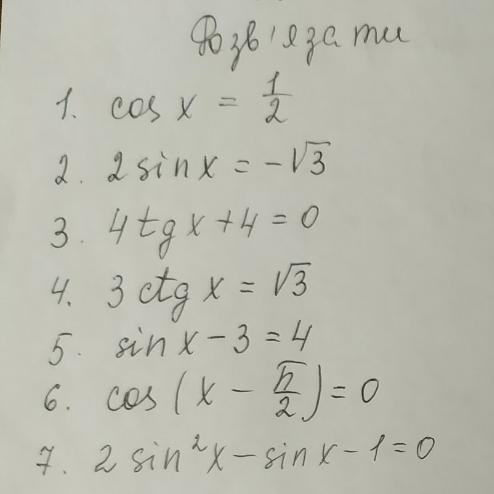 Розв'язати
1. cos x = 1/2
2. 2 sin x = -√3
3. 4 tg x + 4 = 0
4. 3 ctg x = √3
5. sin x - 3 = 4
6. cos (x - π/2) = 0
7. 2 sin²x - sin x - 1 = 0